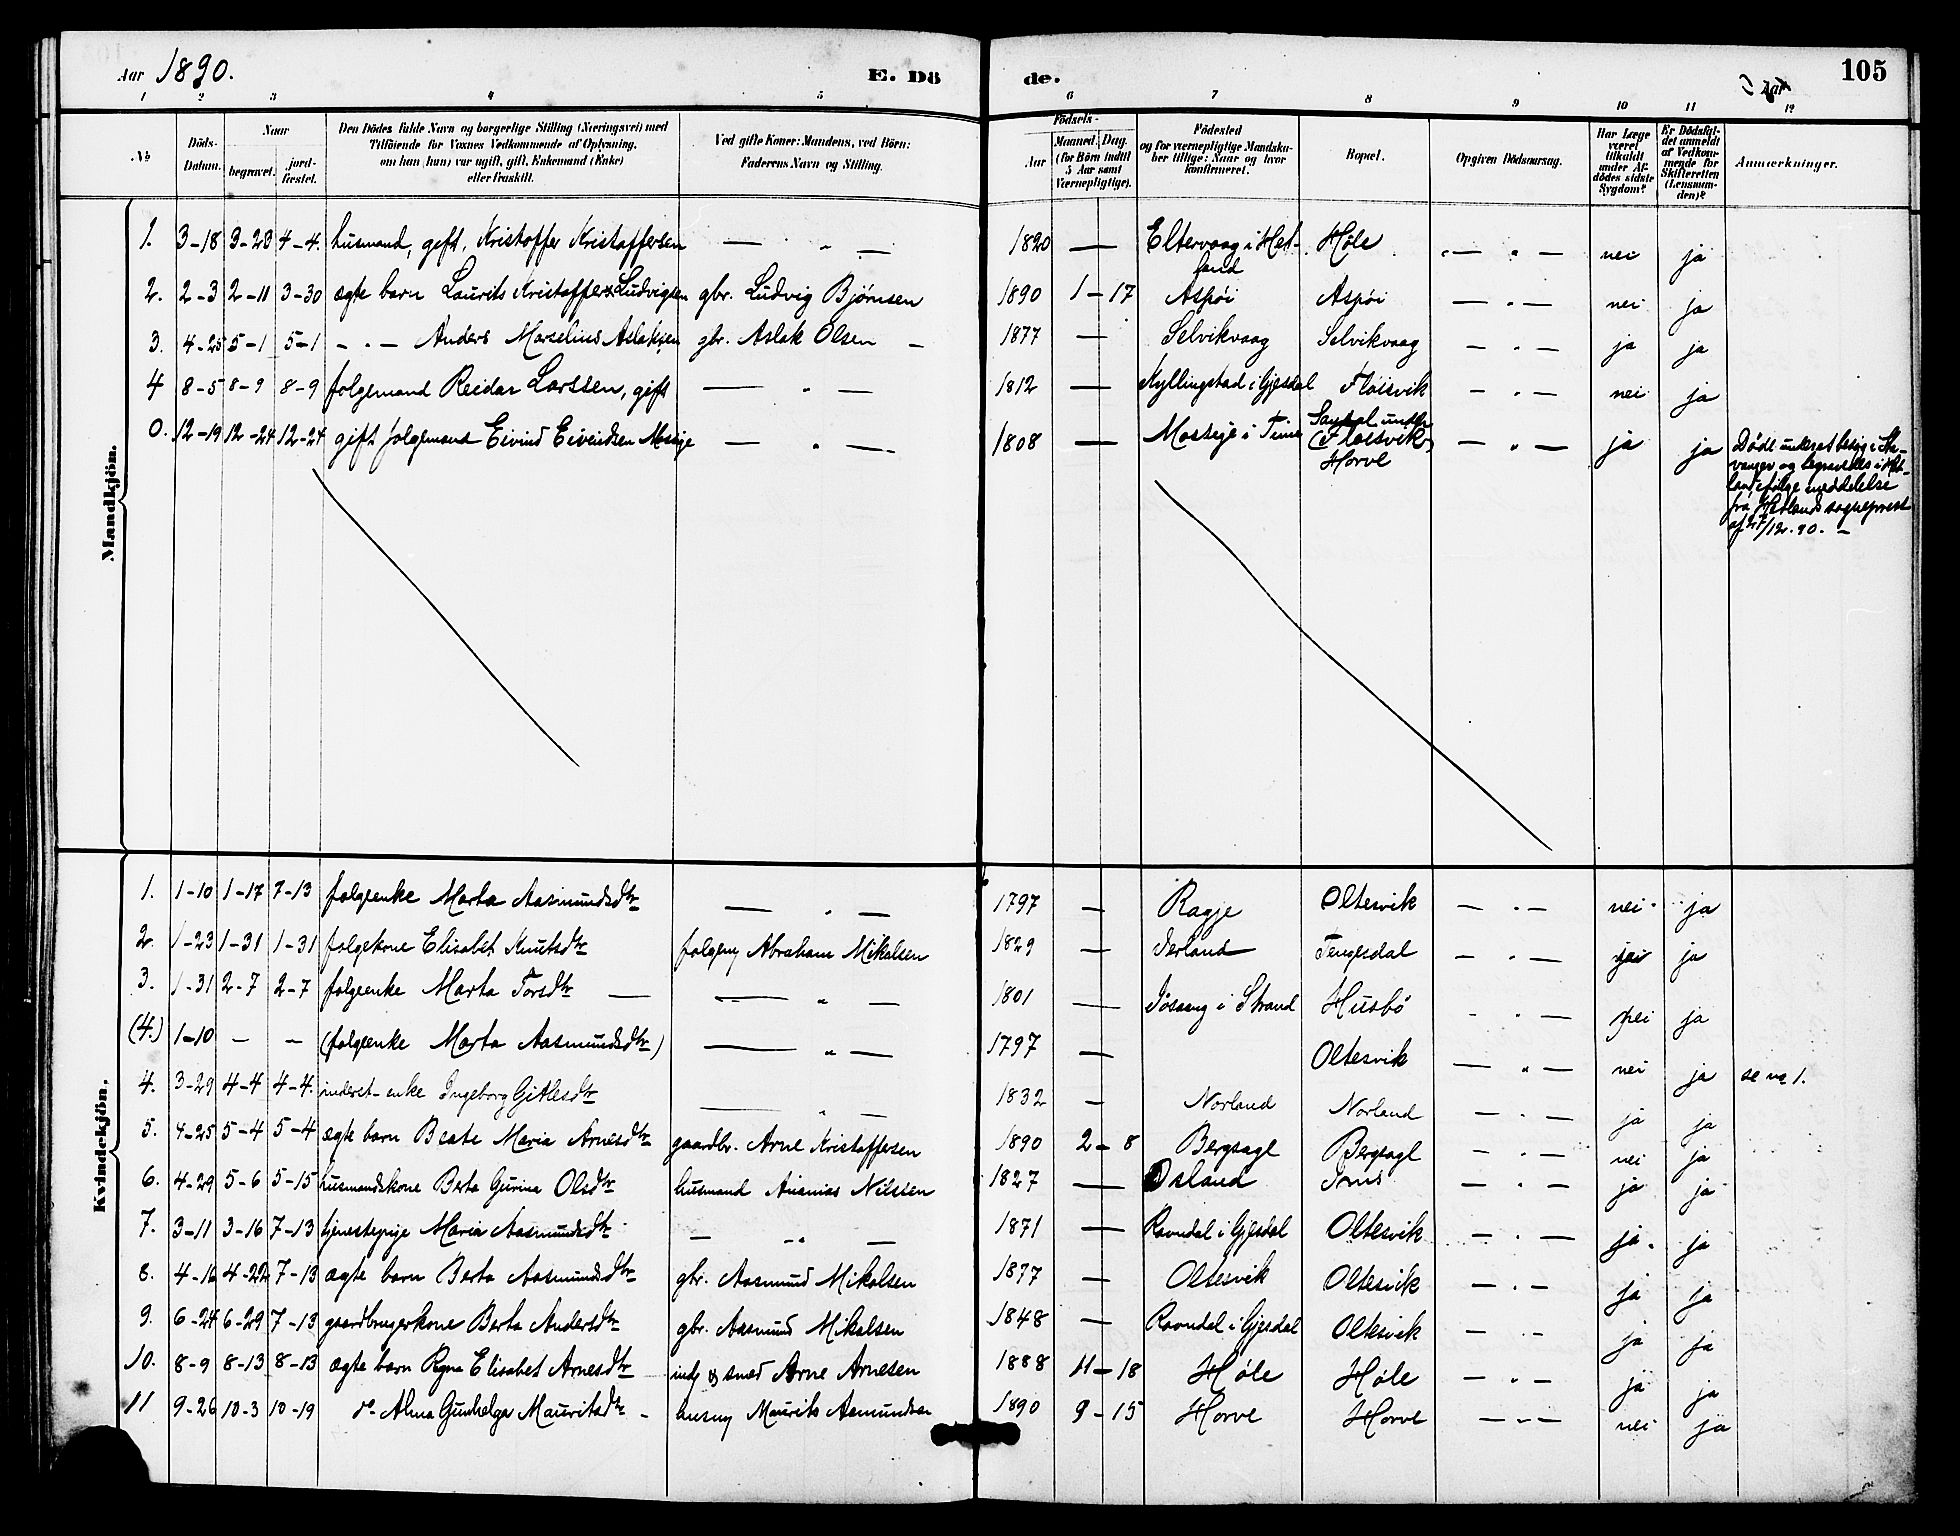 Aar 1890.
E. Dö
de.
105
1 2 3 4 5 6 7 8 9 10 11 12
No
Döds-Datum.
Naar
begravet.
jord-fæstet.
Den Dödes fulde Navn og borgerlige Stilling (Næringsvei) med
Tilföiende for Voxnes Vedkommende af Oplysning,
om han (hun) var ugift, gift, Enkemand (Enke)
eller fraskilt.
Ved gifte Koner: Mandens, ved Börn:
Faderens Navn og Stilling.
Födsels-
Aar
Maaned. Dag.
(for Börn indtil
5 Aar samt
Værnepligtige).
Födested
og for værnepligtige Mandska-
ber tillige: Naar og hvor
konfirmeret.
Bopæl.
Opgiven Dödsaarsag.
Har Læge
været
tilkaldt
under Af-
dödes sidste
Sygdom?
Er Dödsfal-
det anmeldt
af Vedkom-
mende for
Skifteretten
(Lensman-
den)?
Anmærkninger.
Mandkjön.
1. 3-18 3-28 4-4. husmand, gift, Kristoffer Kristoffersen — „ — 1820 — Eltervaag i Het-land Høle — „ — nei ja
2. 2-3 2-11 3-30 ægte barn Laurits Kristoffer Ludvigsen gbr. Ludvig Bjørnsen 1890 1-17 Aspøi Aspøi — „ — nei ja
3. 4-25 5-1 5-1 — „ — Anders Marselius Aslaksen gbr. Aslak Olsen — 1877 — Selvikvaag Selvikvaag — „ — ja ja
4 8-5 8-9 8-9 folgemand Reidar Larssen, gift — „ — 1812 — Kyllingstad i Gjesdal Fløisvik — „ — nei ja
0. 12-19 12-24 12-24 gift folgemand Eivind Eivindsen Mossige — „ — 1808 — Mossige i Time (Fløisvik) Horve — „ — ja ja
Døde
vanger og begravedes i Het-
land ifølge meddelelse
fra Hetlands sogneprest
af 27/12. 90. —
Kvindekjön.
1. 1-10 1-17 7-13 folgeenke Marta Aasmundsdtr — „ — 1797 — Ragje Oltesvik — „ — nei ja
2. 1-23 1-31 1-31 folgekone Elisabet Knutsdtr folgem Abraham Mikalsen 1829 — Tengesdal — „ — ja
3. 1-31 2-7 2-7 folgeenke Marta Torsdtr — — „ — 1801 — Jøsang i Strand Husbø — „ — nei ja
(4.) 1-10 — — (folgeenke Marta Aasmundsdtr) — „ — 1797 — Oltesvik — „ — nei ja se no 1.
4. 3-29 4-4 4-4. inderst-enke Ingeborg Gitlesdtr — „ — 1832 — Norland Norland — „ — ja ja
5. 4-25 5-4 5-4 ægte barn Beate Maria Arnesdtr gaardbr. Arne Kristoffersen 1890 2-8 Bergsagl Bergsagl — „ — nei ja
6. 4-29 5-6 5-15 husmandskone Berta Gurina Olsdtr husmand Ananias Nilssen 1827 — — „ — ja ja
7. 3-11 3-16 7-13 tjenestepige Maria Aasmundsdtr — „ — 1871 — Ravndal i Gjesdal Oltesvik — „ — ja. ja
8. 4-16 4-22 7-13 ægte barn Berta Aasmundsdtr gbr. Aasmund Mikalsen 1877 — Oltesvik Oltesvik — „ — ja ja
9. 6-24 6-29 7-13 gaardbrugerkone Berta Andersdtr gbr. Aasmund Mikalsen 1848 — Ravndal i Gjesdal Oltesvik — „ — ja ja
10. 8-9 8-13 8-13 ægte barn Elisabet Arnesdtr ind & smed Arne Arnesen 1888 11-18 Høle Høle — „ — ja ja
11 9-26 10-3 10-19 do Alma Gunhelga Mauritsdtr — husm Maurits Asmundsen 1890 9-15 Horve Horve — „ — nei ja